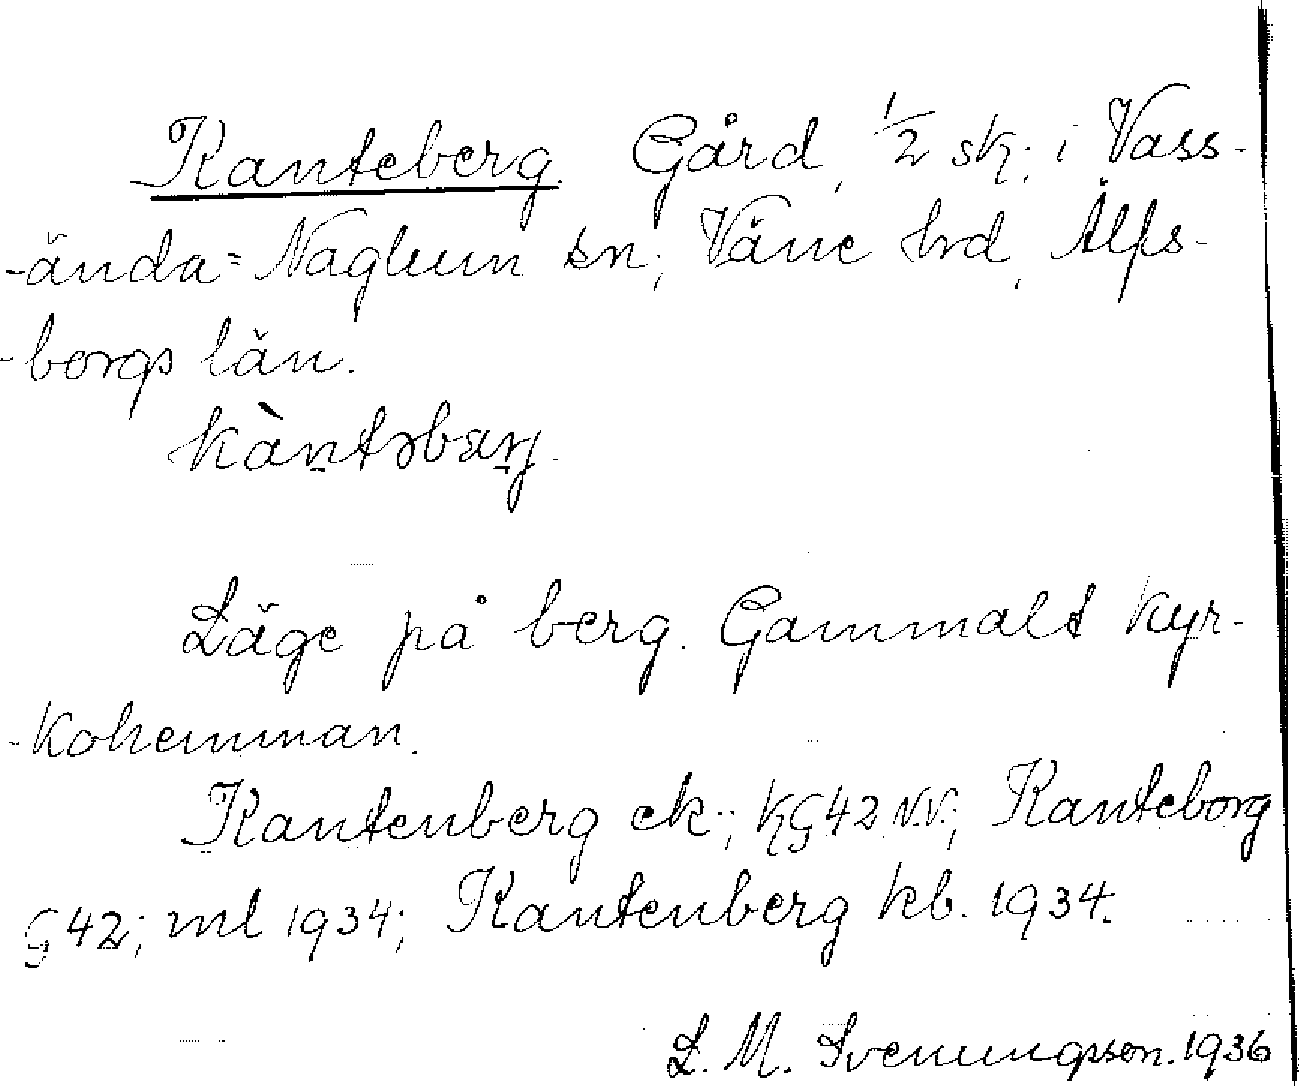 Kanteberg. Gård, 1/2 sk; i Vass-
-ända-Naglum sn; Väne hrd, Älfs-
-borgs län.
kàntəbærj.
Läge på berg. Gammalt kyr-
-kohemman.
Kantenberg ek; KG42 NV; Kanteborg
G42; ml 1934; Kantenberg kb. 1934.
L. M. Svenungsson. 1936